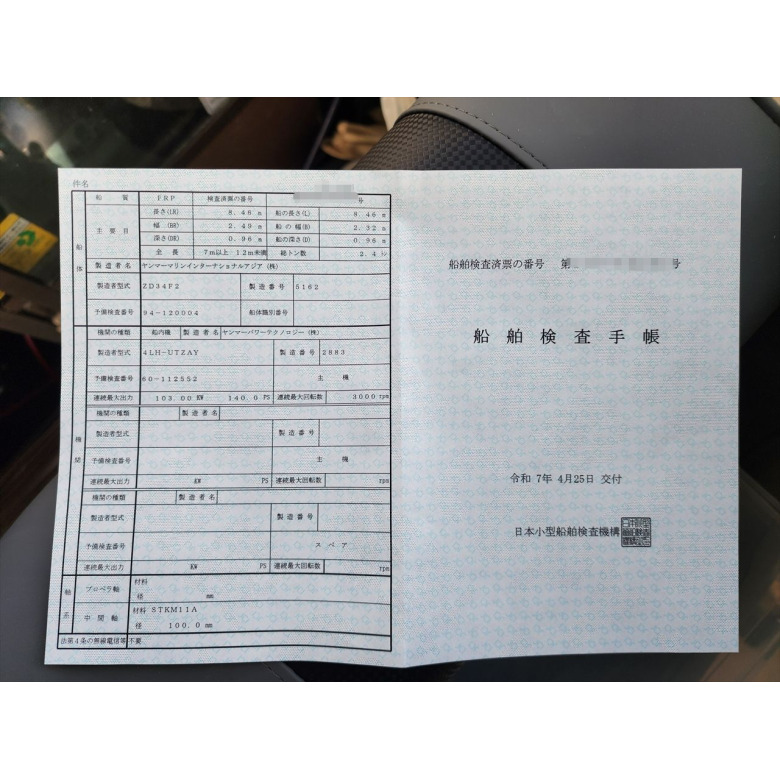 件名
船質 FRP 検査済票の番号 号
主要目 長さ(LR) 8.46 m 船の長さ(L) 8.46 m
幅(BR) 2.49 m 船の幅(B) 2.32 m
深さ(DR) 0.96 m 船の深さ(D) 0.96 m
全長 7m以上 12m未満 総トン数 2.4 トン
船体
製造者名 ヤンマーマリンインターナショナルアジア(株)
製造者型式 ZD34F2 製造番号 5162
予備検査番号 94-120004 船体識別番号
機関の種類 船内機 製造者名 ヤンマーパワーテクノロジー(株)
製造者型式 4LH-UTZAY 製造番号 2883
予備検査番号 60-112552 主機
連続最大出力 103.00 KW 140.0 PS 連続最大回転数 3000 rpm
機関の種類 製造者名
製造者型式 製造番号
機関
予備検査番号 主機
連続最大出力 KW PS 連続最大回転数 rpm
機関の種類 製造者名
製造者型式 製造番号
予備検査番号 スペア
連続最大出力 KW PS 連続最大回転数 rpm
軸系 プロペラ軸 材料
径 mm
中間軸 材料 STKM11A
径 100.0 mm
法第4条の無線電信等 不要
船舶検査済票の番号 第 号
船舶検査手帳
令和 7年 4月25日 交付
日本小型船舶検査機構